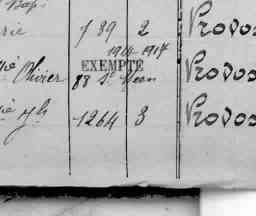 rie 789 2 Provos
1914-1917
EXEMPTÉ
Olivier 88 St Jean Provos
1264 3 Provos